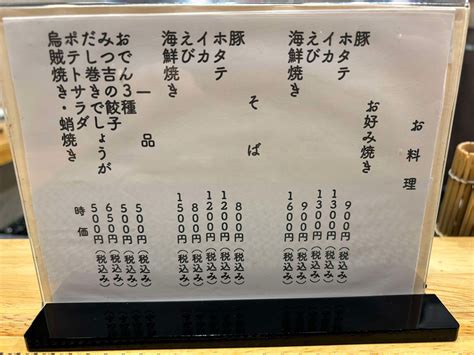 お料理
お好み焼き
豚 900円(税込み)
ホタテ 1300円(税込み)
イカ 1300円(税込み)
えび 900円(税込み)
海鮮焼き 1600円(税込み)
そば
豚 800円(税込み)
ホタテ 1200円(税込み)
イカ 1200円(税込み)
えび 800円(税込み)
海鮮焼き 1500円(税込み)
一品
おでん3種 500円(税込み)
みつ吉の餃子 500円(税込み)
だし巻きでしょうが 650円(税込み)
ポテトサラダ 500円(税込み)
烏賊焼き・蛸焼き 時価